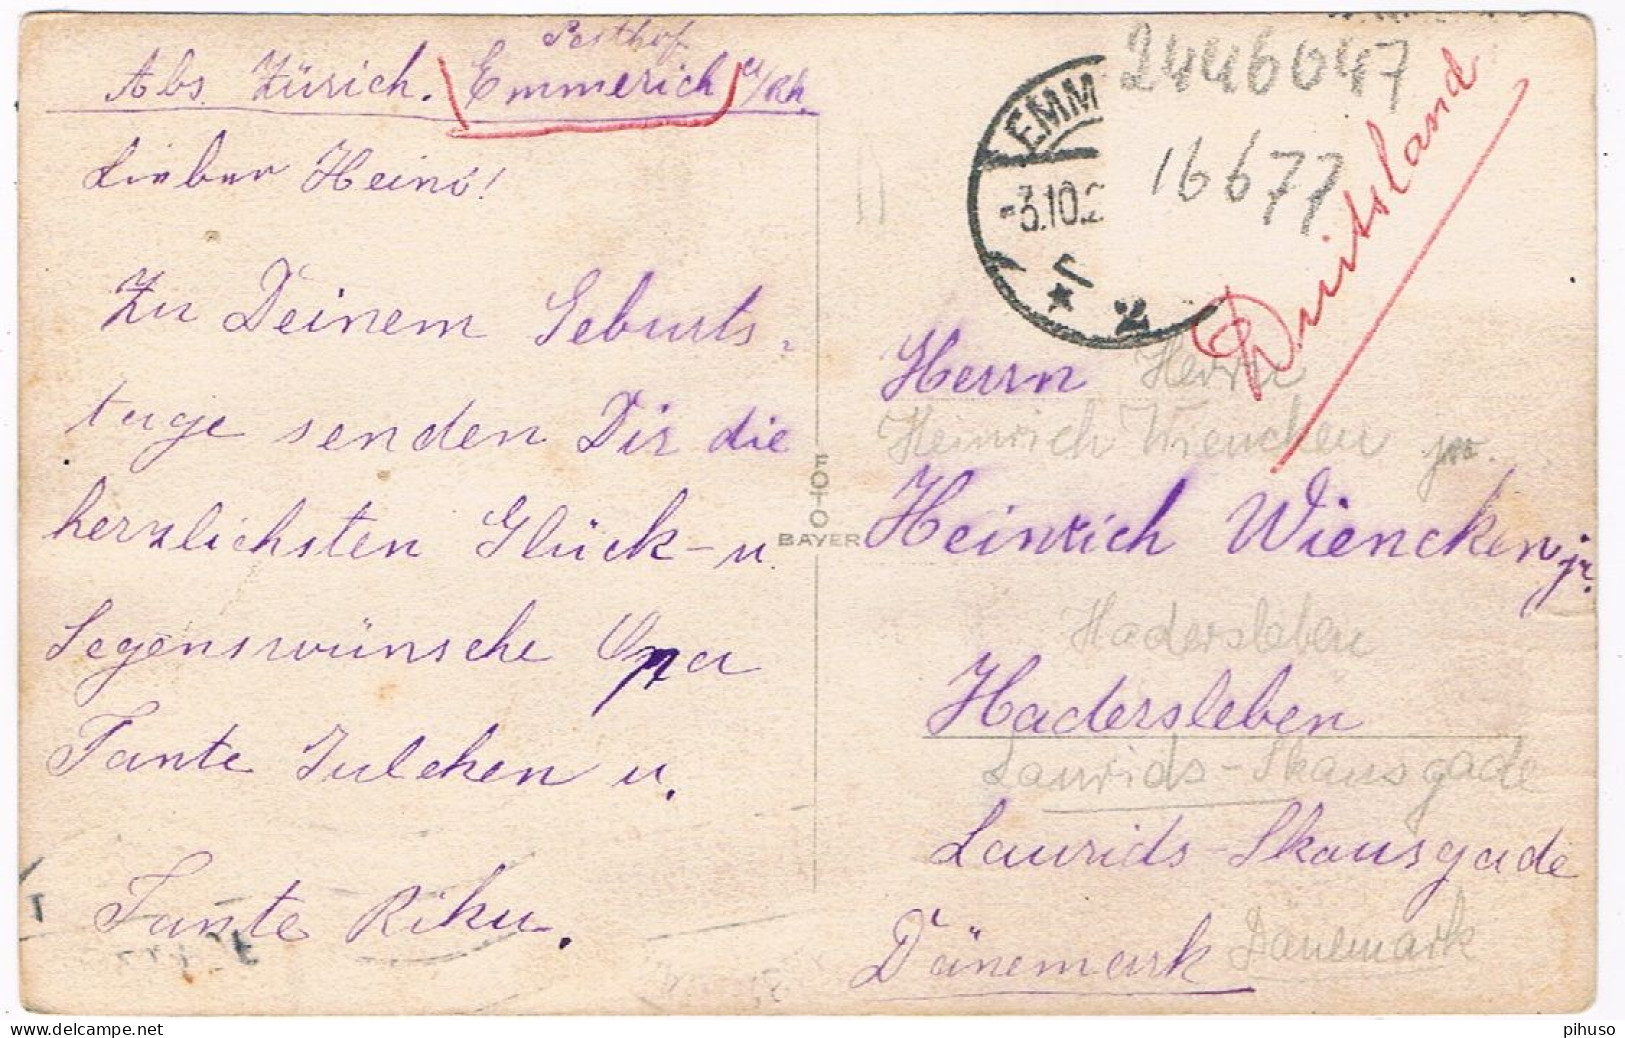 Posthof
Abs. Zürich. Emmerich a/Rh.
Lieber Heini!
Zu Deinem Geburts-
tage senden Dir die
herzlichsten Glück- u.
Segenswünsche Opa
Tante Julchen u.
Tante Riku.
FOTO
BAYER
EMM
-3.10.2
* 2
2446047
16677
Duitsland
Herrn
Herrn
Heinrich Wiencken jr.
Heinrich Wiencken jr.
Hadersleben
Hadersleben
Laurids-Skausgade
Laurids-Skausgade
Dänemark
Dänemark
delcampe.net
pihuso